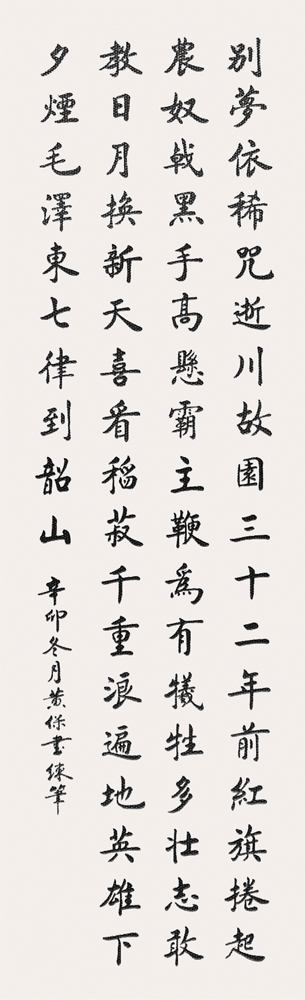 別夢依稀咒逝川故園三十二年前紅旗捲起
農奴戟黑手高懸霸主鞭爲有犧牲多壯志敢
教日月換新天喜看稻菽千重浪遍地英雄下
夕煙毛澤東七律到韶山
辛卯冬月黄保書練筆